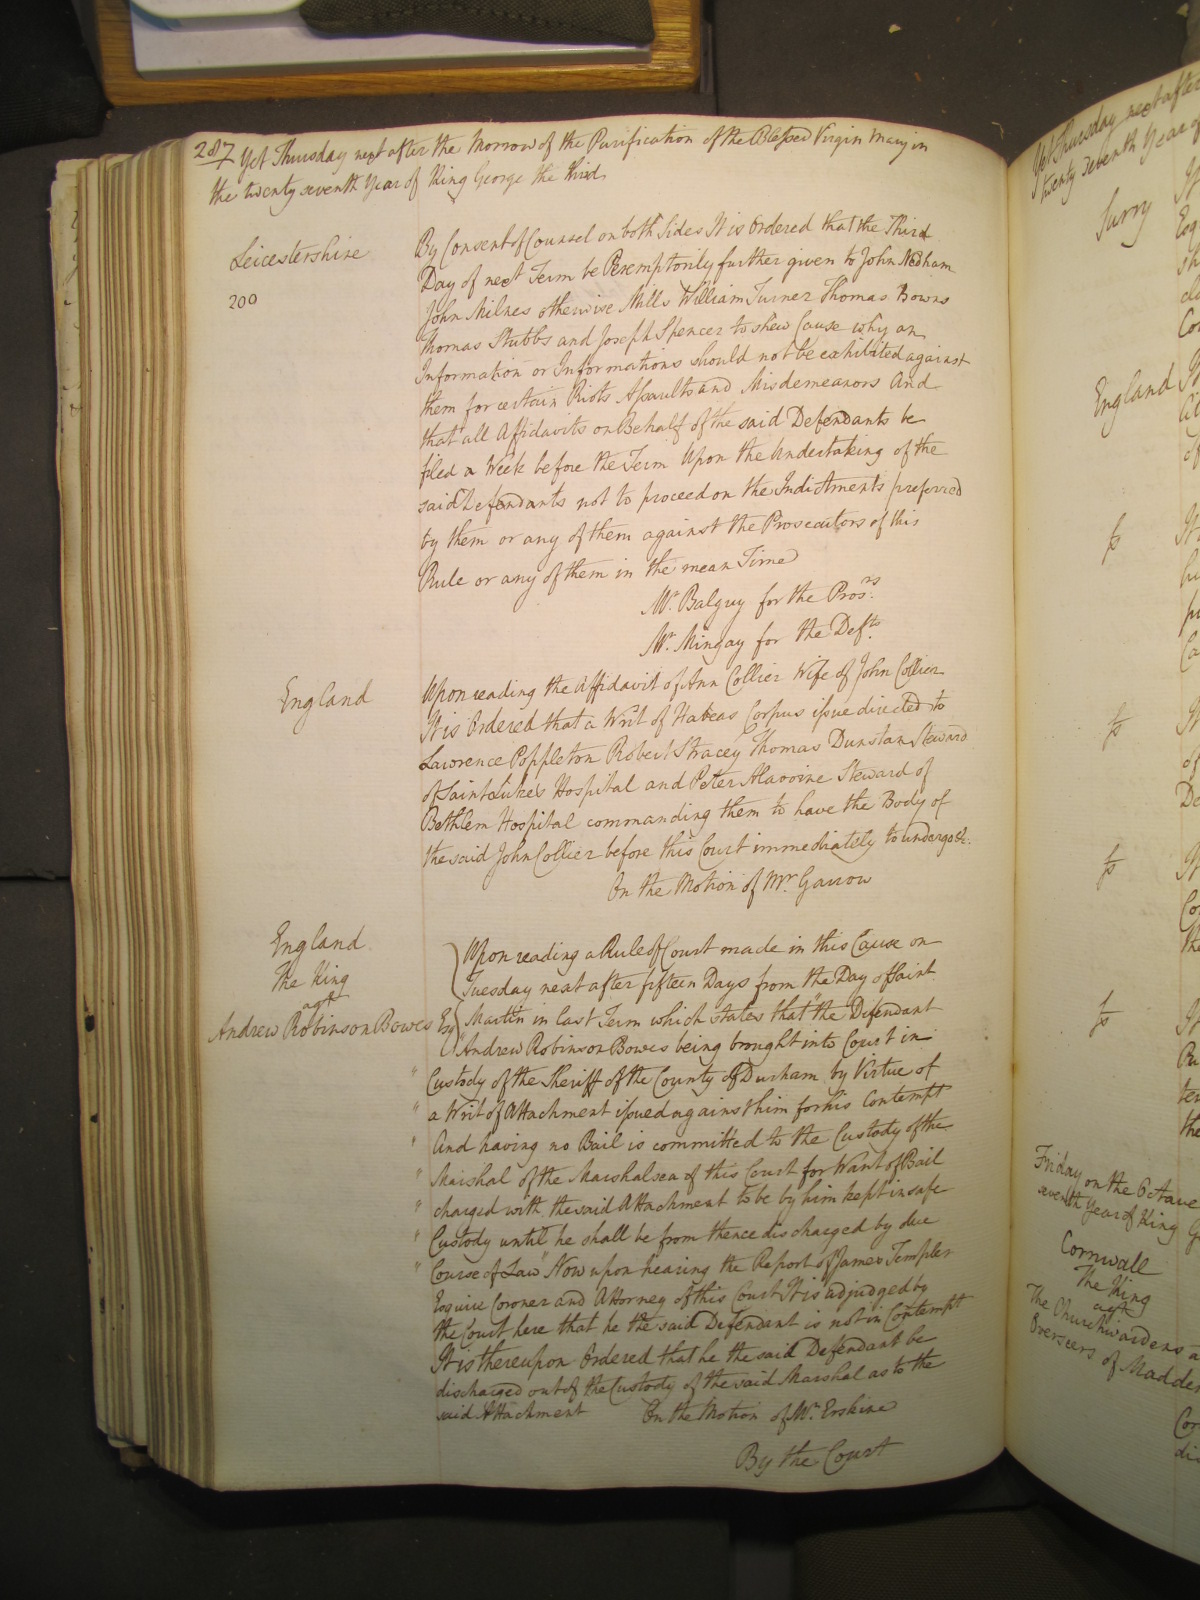 287 Yet Thursday next after the Morrow of the Purification of the Blessed Virgin Mary in
the twenty seventh Year of King George the third
Leicestershire
200
By Consent of Counsel on both Sides It is Ordered that the Third
Day of next Term be Peremptorily further given to John Nedham
John Milnes otherwise Mills William Turner Thomas Bowns
Thomas Stubbs and Joseph Spencer to shew Cause why an
Information or Informations should not be exhibited against
them for certain Riots Assaults and Misdemeanors And
that all Affidavits on Behalf of the said Defendants be
filed a Week before the Term Upon the Undertaking of the
said Defendants not to proceed on the Indictments preferred
by them or any of them against the Prosecutors of this
Rule or any of them in the mean Time
Mr. Balguy for the Prosrs.
Mr. Mingay for the Defts.
England
Upon reading the Affidavit of Ann Collier Wife of John Collier
It is Ordered that a Writ of Habeas Corpus issue directed to
Lawrence Poppleton Robert Stracey Thomas Dunstan Steward
of Saint Luke's Hospital and Peter Alavoine Steward of
Bethlem Hospital commanding them to have the Body of
the said John Collier before this Court immediately to undergo &c.
On the Motion of Mr. Garrow
England
The King
agt
Andrew Robinson Bowes Esq
Upon reading a Rule of Court made in this Cause on
Tuesday next after fifteen Days from the Day of Saint
Martin in last Term which states that "the Defendant
"Andrew Robinson Bowes being brought into Court in
" Custody of the Sheriff of the County of Durham by Virtue of
" a Writ of Attachment issued against him for his Contempt
" And having no Bail is committed to the Custody of the
" Marshal of the Marshalsea of this Court for Want of Bail
" charged with the said Attachment to be by him kept in safe
" Custody until he shall be from thence discharged by due
" Course of Law" Now upon hearing the Report of James Templer
Esquire Coroner and Attorney of this Court It is adjudged by
the Court here that he the said Defendant is not in Contempt
It is thereupon Ordered that he the said Defendant be
discharged out of the Custody of the said Marshal as to the
said Attachment On the Motion of Mr. Erskine
By the Court
Yet Thursday next after
twenty seventh Year of
Surry
England
Friday on the Octave
seventh Year of King
Cornwall
The King
agt
The Churchwardens a
Overseers of Madder